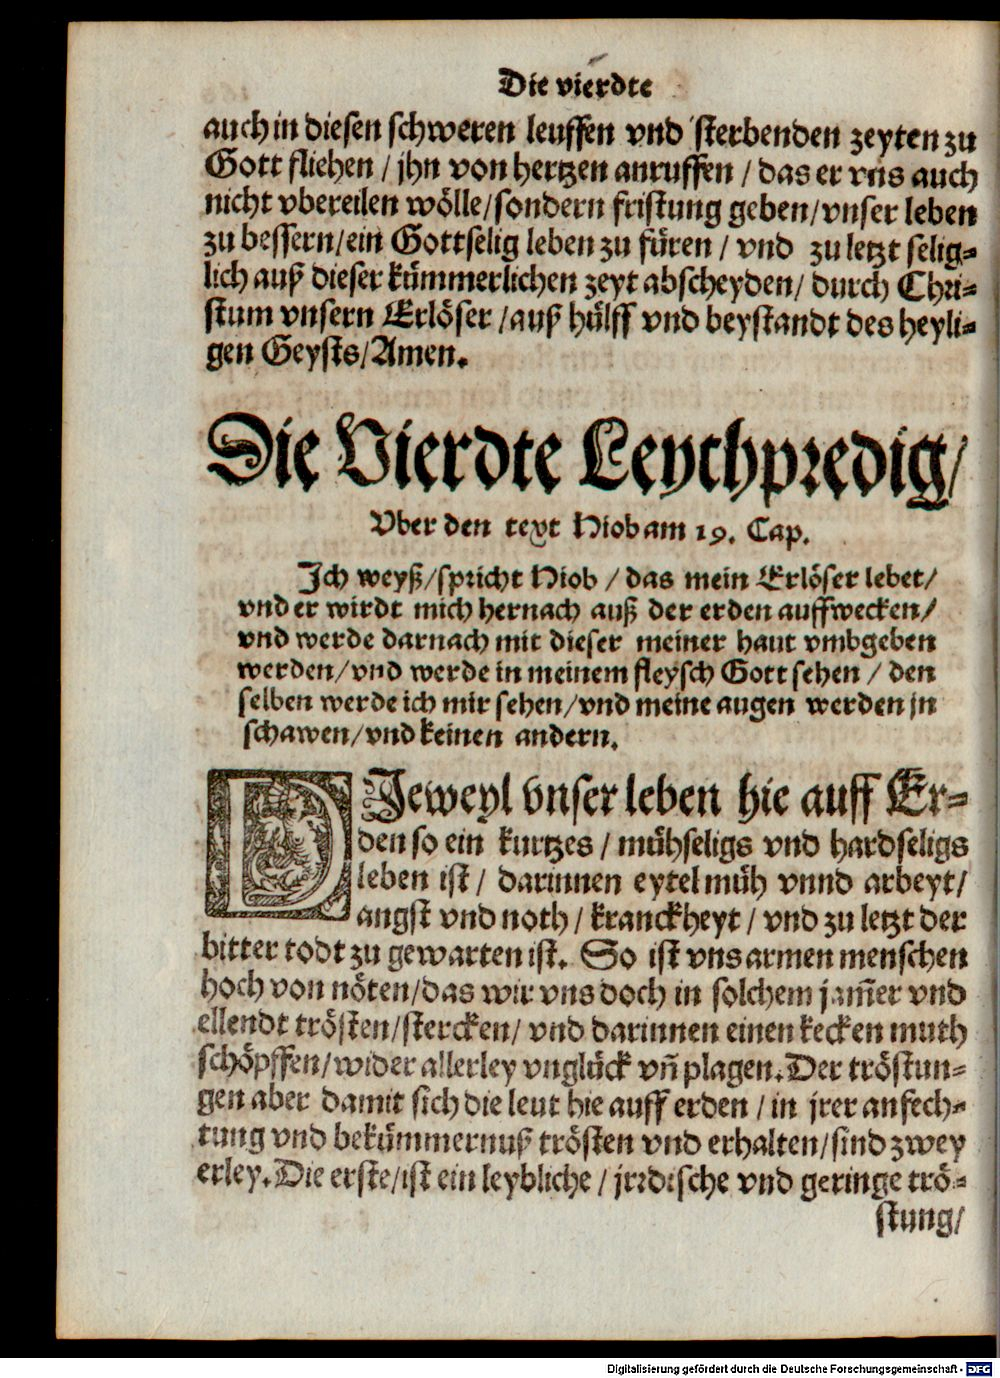 Die vierdte
auch in diesen schweren leuffen vnd sterbenden zeyten zu
Gott fliehen / jhn von hertzen anruffen / das er vns auch
nicht vbereilen wölle / sondern fristung geben / vnser leben
zu bessern / ein Gottselig leben zu füren / vnd zu letzt selig-
lich auß dieser kümmerlichen zeyt abscheyden / durch Chri-
stum vnsern Erlöser / auß hülff vnd beystandt des heyli-
gen Geysts / Amen.
Die Vierdte Leychpredig /
Vber den text Hiob am 19. Cap.
Ich weyß / spricht Hiob / das mein Erlöser lebet /
vnd er wirdt mich hernach auß der erden auffwecken /
vnd werde darnach mit dieser meiner haut vmbgeben
werden / vnd werde in meinem fleysch Gott sehen / den
selben werde ich mir sehen / vnd meine augen werden jn
schawen / vnd keinen andern.
DIeweyl vnser leben hie auff Er-
den so ein kurtzes / mühseligs vnd hardseligs
leben ist / darinnen eytel müh vnnd arbeyt /
angst vnd noth / kranckheyt / vnd zu letzt der
bitter todt zu gewarten ist. So ist vns armen menschen
hoch von nöten / das wir vns doch in solchem jam̃er vnd
ellendt trösten / stercken / vnd darinnen einen kecken muth
schöpffen / wider allerley vnglück vñ plagen. Der tröstun-
gen aber damit sich die leut hie auff erden / in jrer anfech-
tung vnd bekümmernuß trösten vnd erhalten / sind zwey
erley. Die erste / ist ein leybliche / jrrdische vnd geringe trö-
stung /
Digitalisierung gefördert durch die Deutsche Forschungsgemeinschaft - DFG